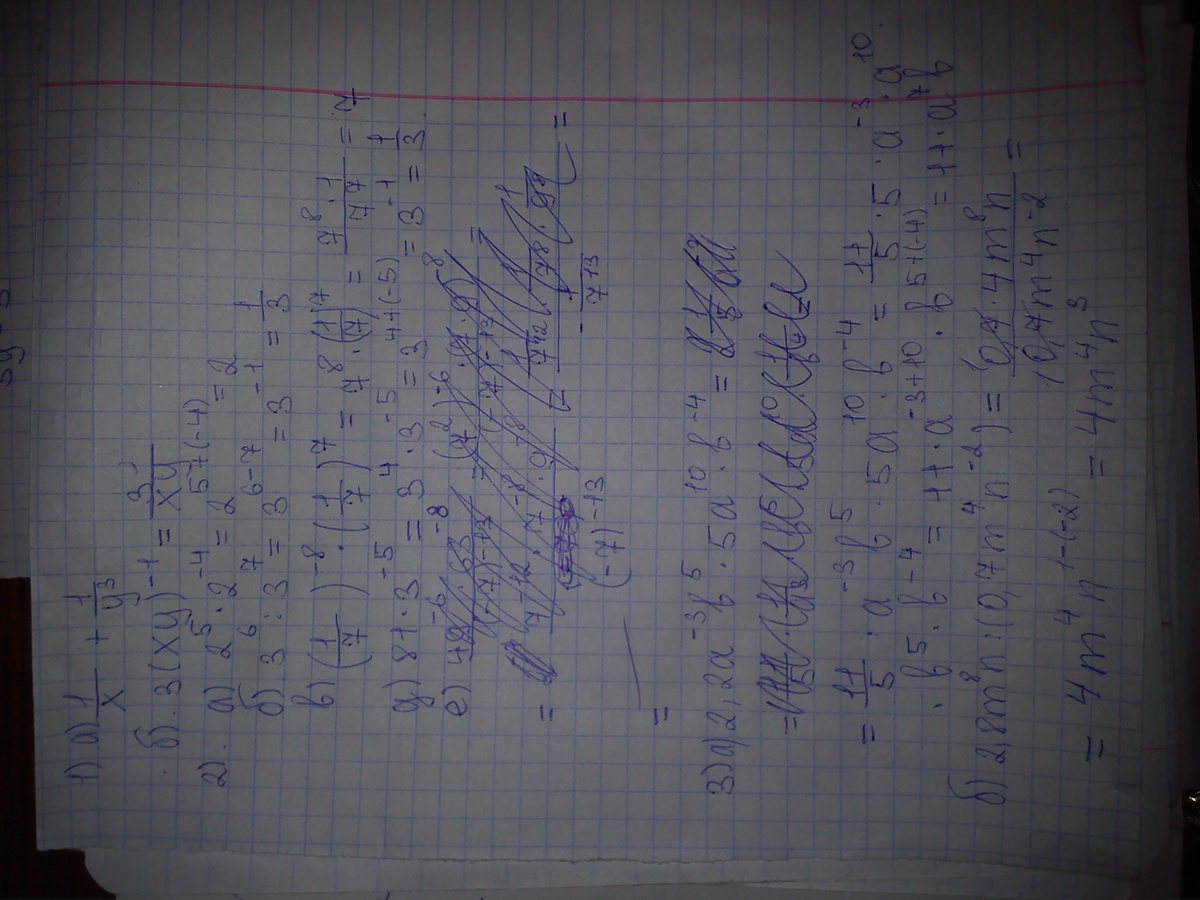 1) а) 1/x + 1/y³
б). 3(xy)⁻¹ = 3/xy
2).
а) 2⁵·2⁻⁴ = 2⁵⁺⁽⁻⁴⁾ = 2
б) 3⁶:3⁷ = 3⁶⁻⁷ = 3⁻¹ = 1/3
в) (1/7)⁻⁸·(1/7)⁷ = 7⁸·(1/7)⁷ = 7⁸·1/7⁷ = 7
д) 81·3⁻⁵ = 3⁴·3⁻⁵ = 3⁴⁺⁽⁻⁵⁾ = 3⁻¹ = 1/3.
е)
(-7)⁻¹³
=
3) а) 2,2a⁻³b⁵·5a¹⁰·b⁻⁴ =
=
= 11/5·a⁻³b⁵·5a¹⁰·b⁻⁴ = 11/5·5·a⁻³·a¹⁰·
·b⁵·b⁻⁴ = 11·a⁻³⁺¹⁰·b⁵⁺⁽⁻⁴⁾ = 11·a⁷b
б) 2,8m⁸n:(0,7m⁴n⁻²) = 0,7·4m⁸n/0,7m⁴n⁻² =
= 4m⁴n¹⁻⁽⁻²⁾ = 4m⁴n³